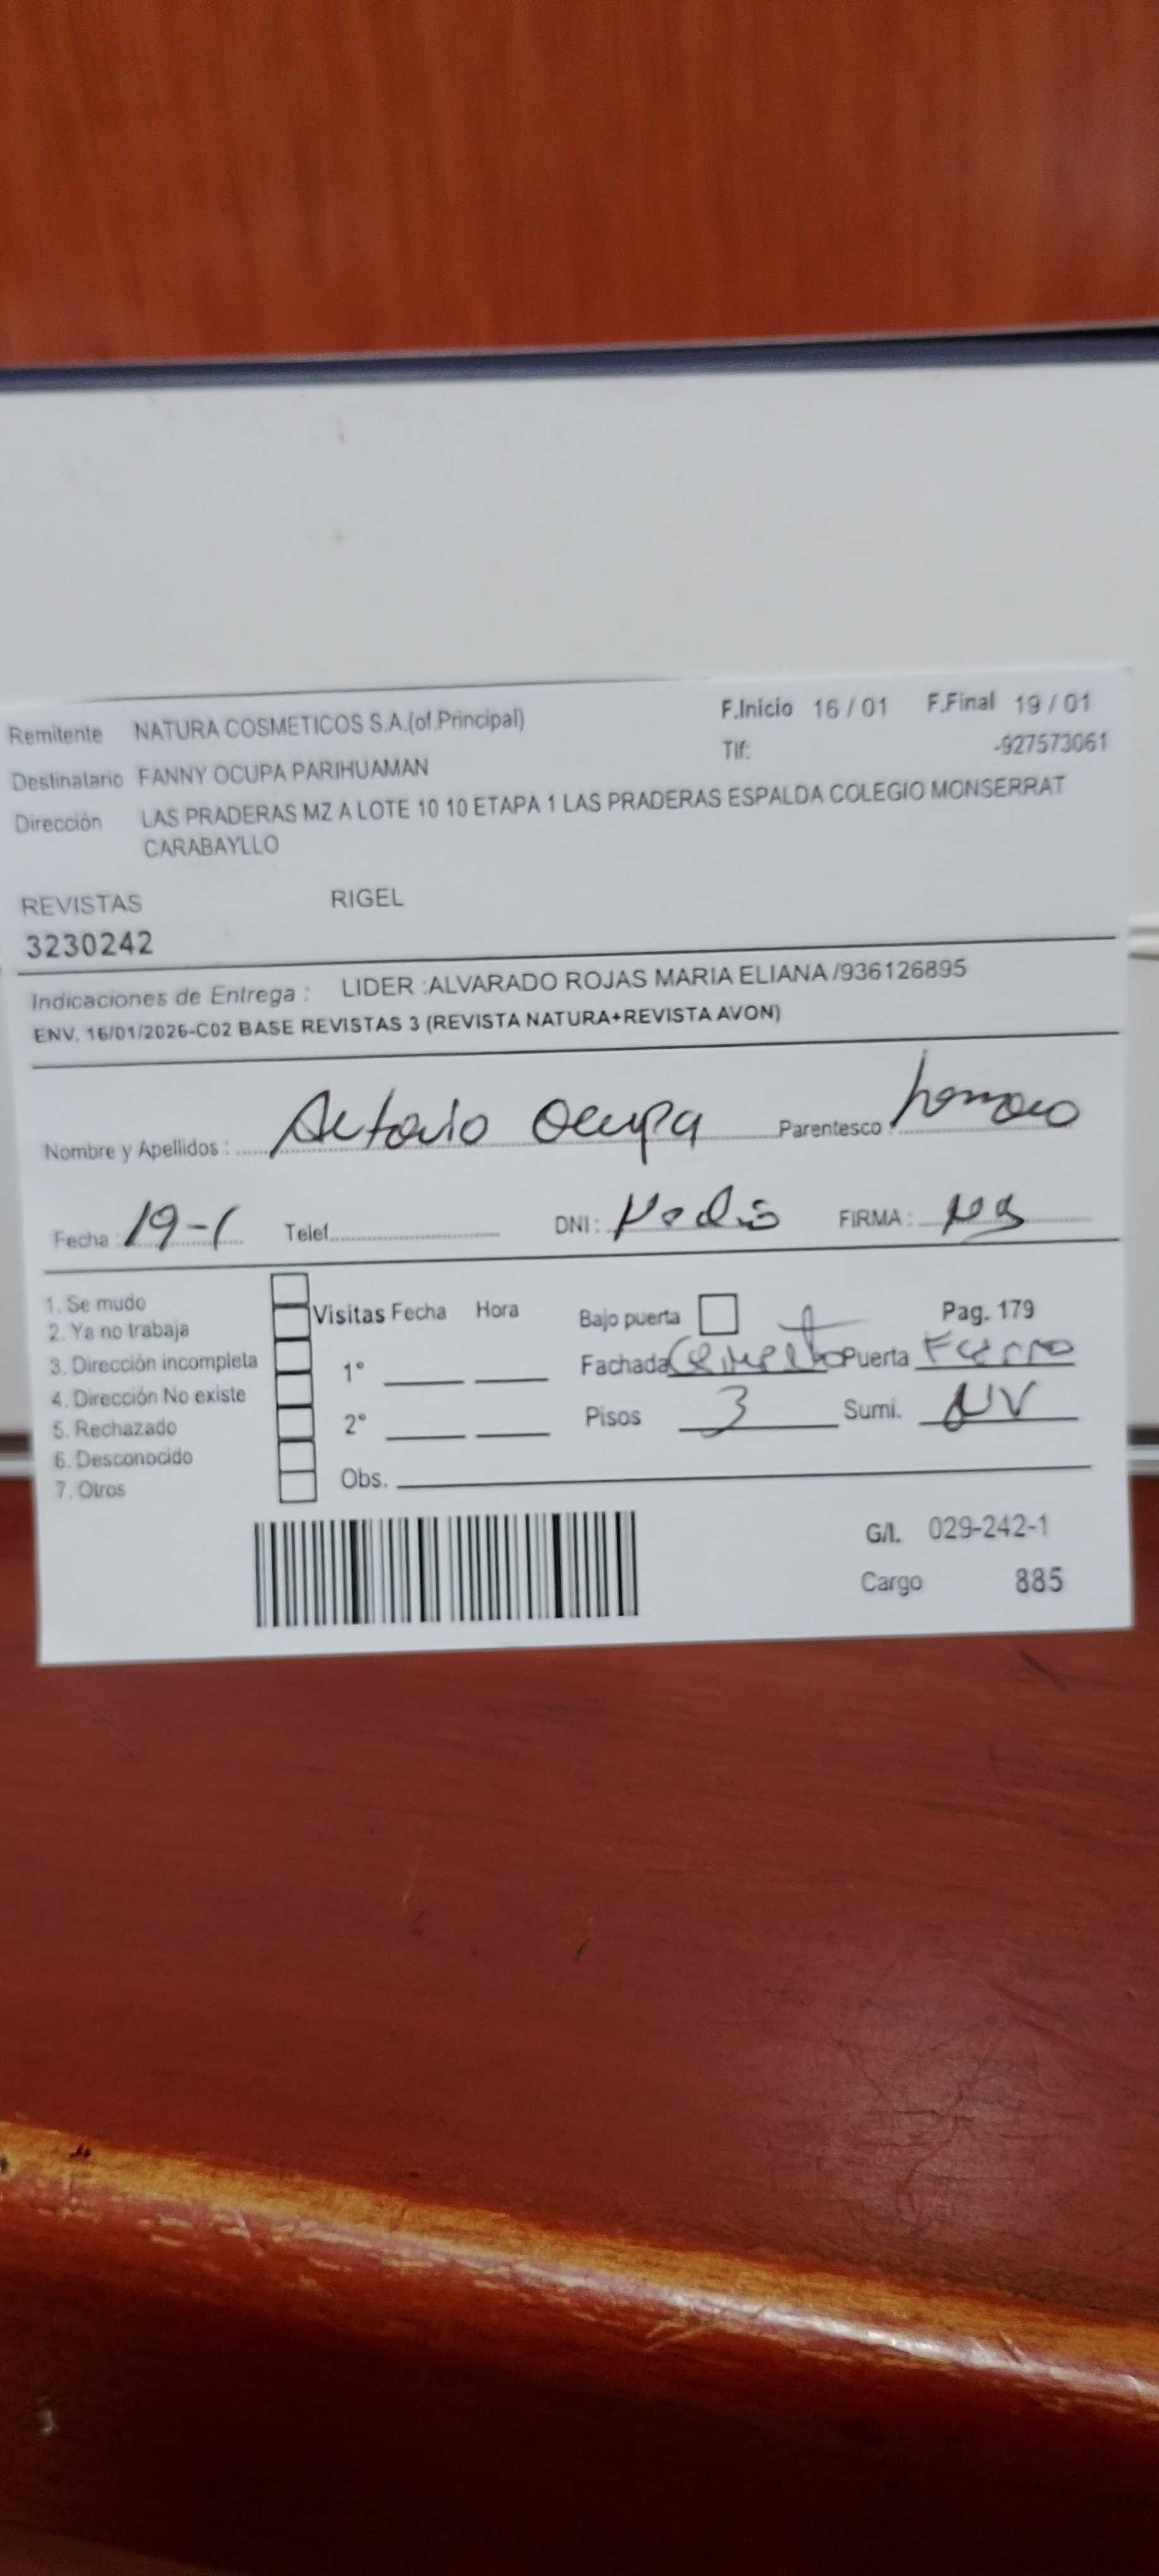 Remitente NATURA COSMETICOS S.A.(of.Principal) F.Inicio 16 / 01 F.Final 19 / 01
Tlf: -927573061
Destinatario FANNY OCUPA PARIHUAMAN
Dirección LAS PRADERAS MZ A LOTE 10 10 ETAPA 1 LAS PRADERAS ESPALDA COLEGIO MONSERRAT
CARABAYLLO
REVISTAS RIGEL
3230242
Indicaciones de Entrega : LIDER :ALVARADO ROJAS MARIA ELIANA /936126895
ENV. 16/01/2026-C02 BASE REVISTAS 3 (REVISTA NATURA+REVISTA AVON)
Nombre y Apellidos : Antonio Ocupa Parentesco : hermano
Fecha : 19-1 Telef. DNI : No dio FIRMA :
1. Se mudo
2. Ya no trabaja
3. Dirección incompleta
4. Dirección No existe
5. Rechazado
6. Desconocido
7. Otros
Visitas Fecha Hora
1°
2°
Obs.
Bajo puerta Pag. 179
Fachada Puerta Fierro
Pisos 3 Sumi. NV
G/l. 029-242-1
Cargo 885